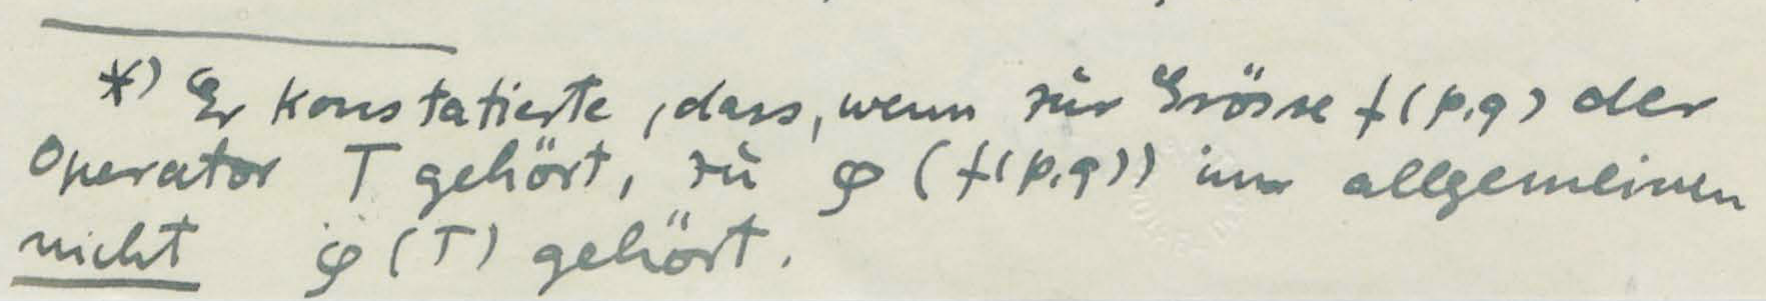 *) Er konstatierte, dass, wenn zur Grösse f(p,q) der
Operator T gehört, zu φ (f(p,q)) im allgemeinen
nicht φ(T) gehört.